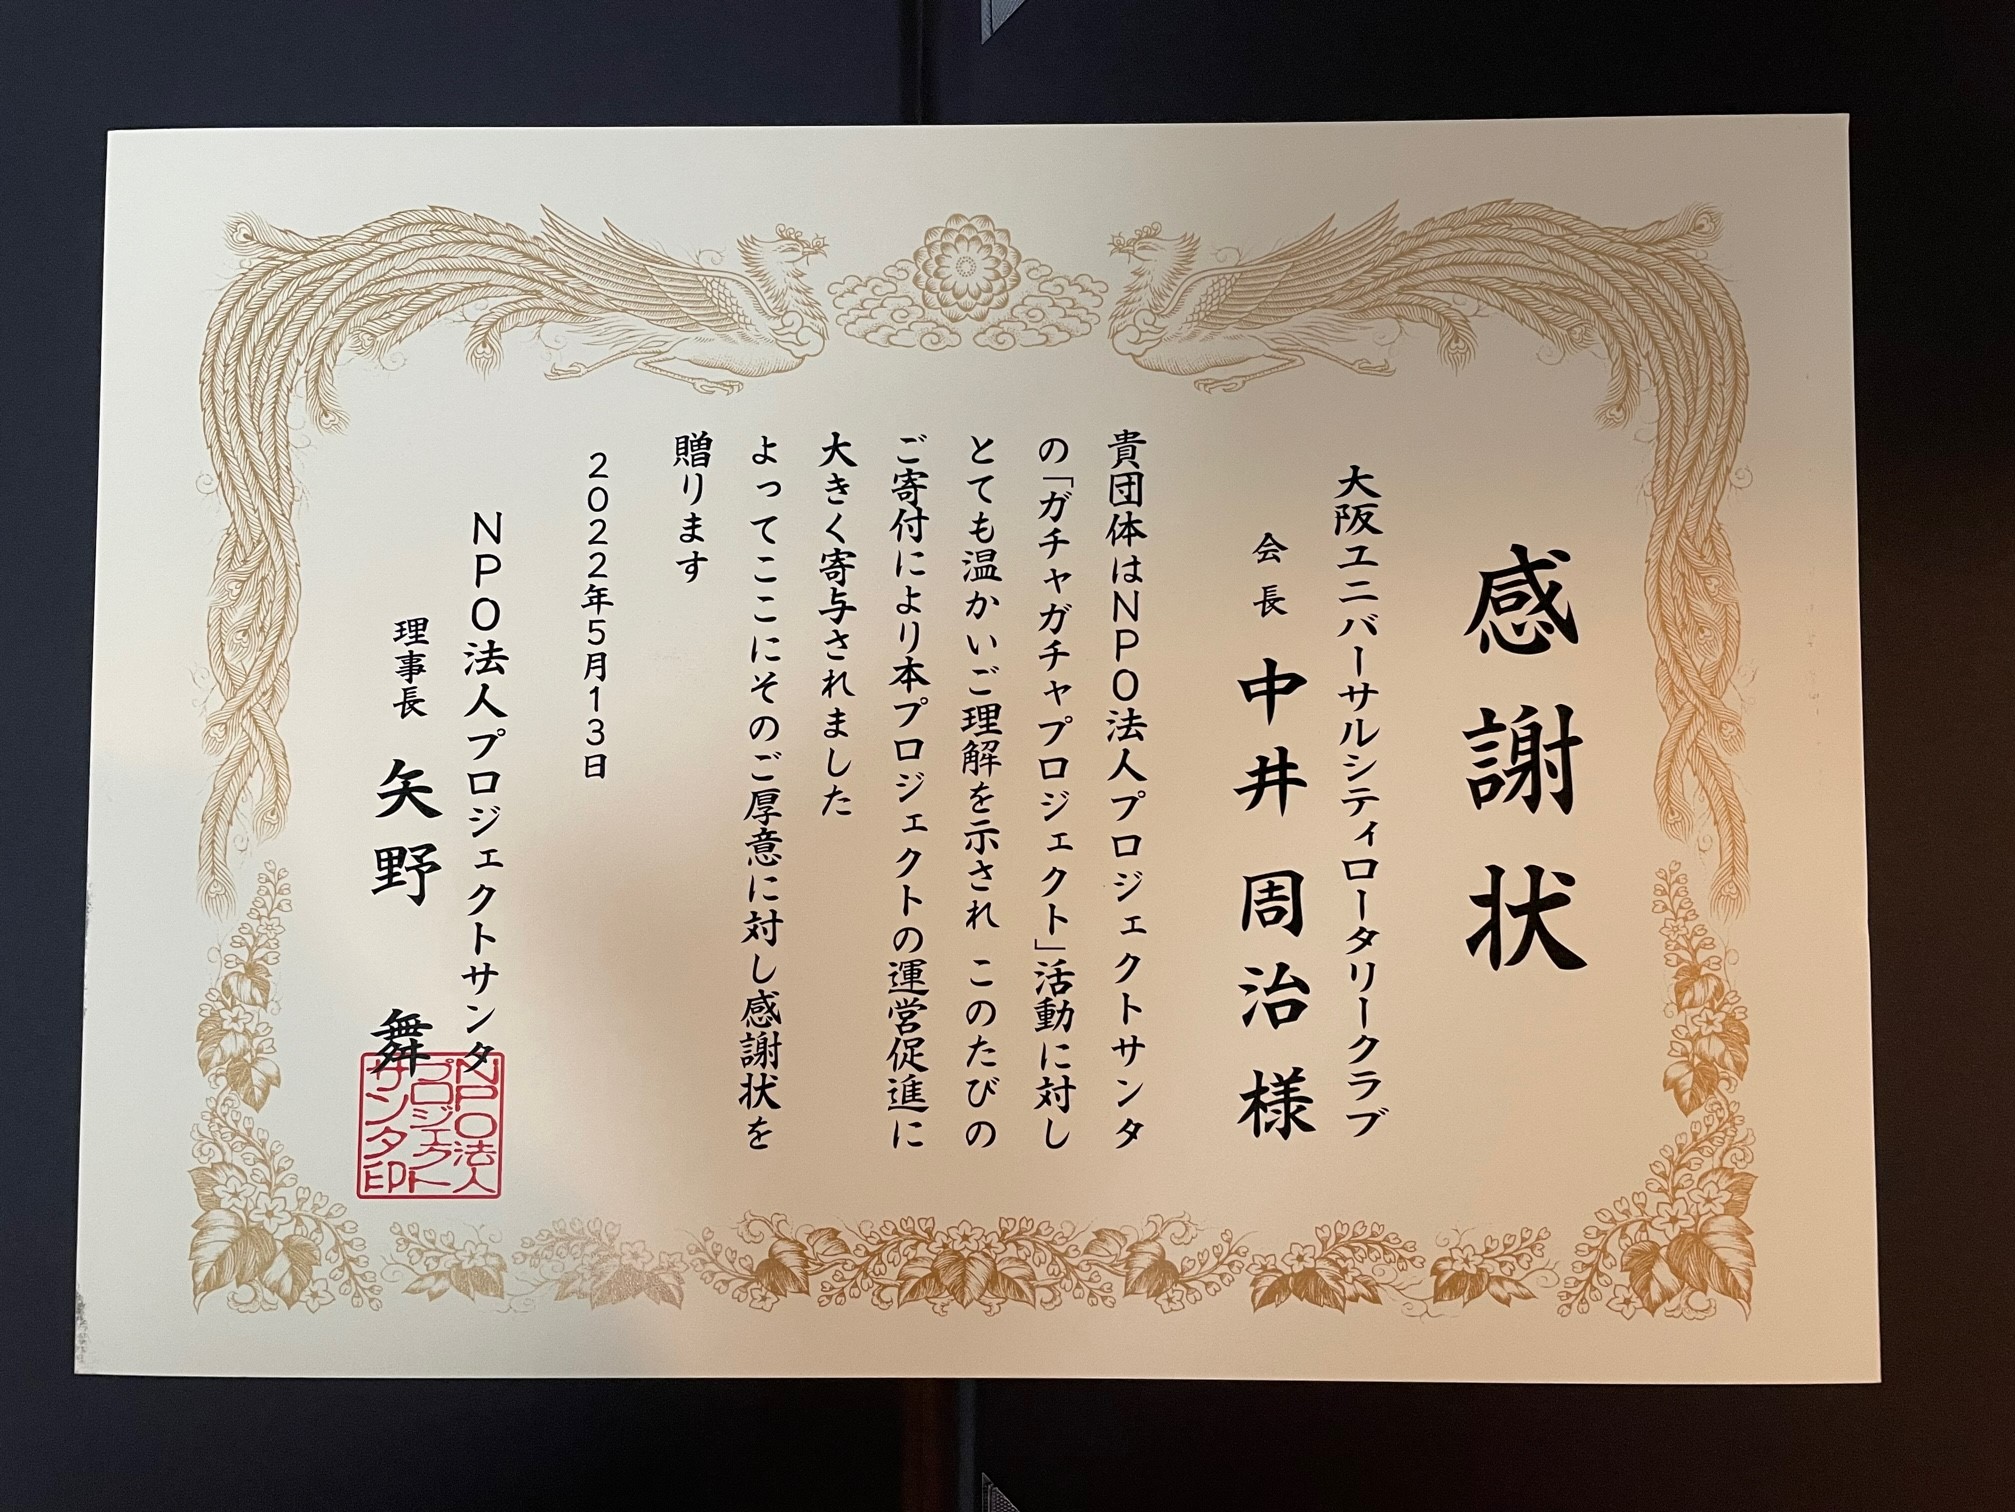 感謝状
大阪ユニバーサルシティロータリークラブ
会長 中井 周治 様
貴団体はNPO法人プロジェクトサンタ
の「ガチャガチャプロジェクト」活動に対し
とても温かいご理解を示され このたびの
ご寄付により本プロジェクトの運営促進に
大きく寄与されました
よってここにそのご厚意に対し感謝状を
贈ります
2022年5月13日
NPO法人プロジェクトサンタ
理事長 矢野 舞
NPO法人
プロジェクト
サンタ印